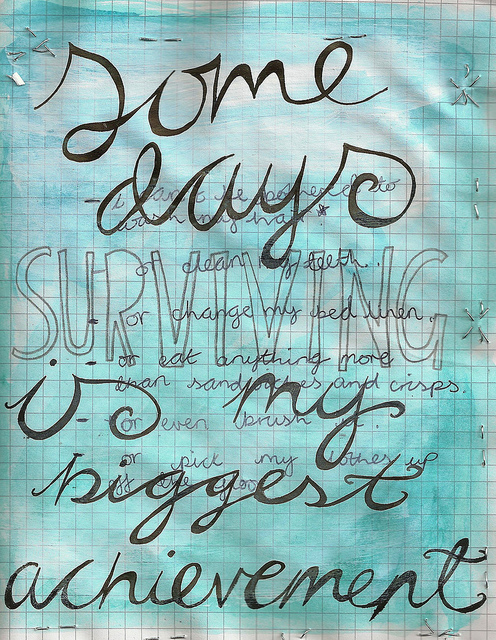 some
days
- i can't be bothered to
wash my hair *
or clean my teeth.
SURVIVING
- or change my bed linen.
- or eat anything more
than sandwiches and crisps.
is my
- or even brush it.
or pick my clothes up
off the floor
biggest
achievement